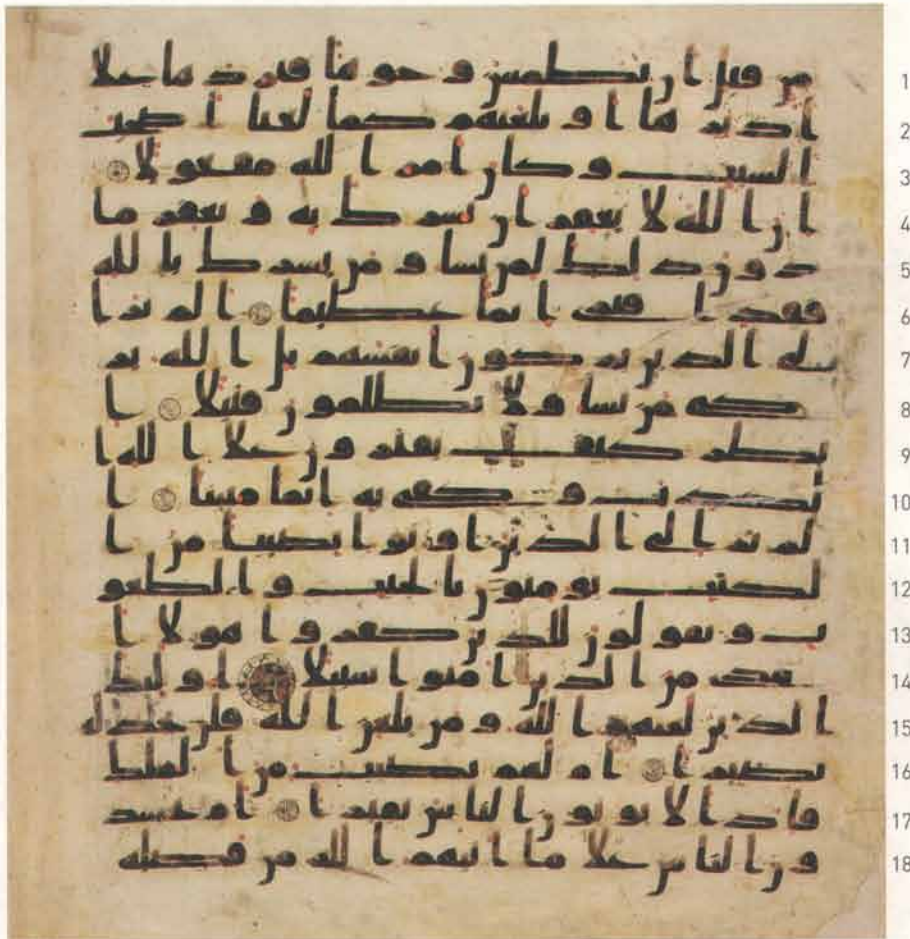 من قبل ان نطمس وجوها فنردها علا 1
ادبرها او نلعنهم كما لعنا اصحب 2
السبت وكان امر الله مفعولا 3
ان الله لا يغفر ان يشرك به ويغفر ما 4
دون ذلك لمن يشا ومن يشرك بالله 5
فقد افترى اثما عظيما الم تر ا 6
لى الذين يزكون انفسهم بل الله يز 7
كى من يشا ولا يظلمون فتيلا ا 8
نظر كيف يفترون علا الله ا 9
لكذب وكفى به اثما مبينا ا 10
لم تر الى الذين اوتوا نصيبا من ا 11
لكتب يومنون بالجبت والطغو 12
ت ويقولون للذين كفروا هولا ا 13
هدى من الذين امنوا سبيلا اوليك 14
الذين لعنهم الله ومن يلعن الله فلن تجد له 15
نصيرا ام لهم نصيب من الملك 16
فاذا لا يوتون الناس نقيرا ام يحسد 17
ون الناس علا ما اتيهم الله من فضله 18